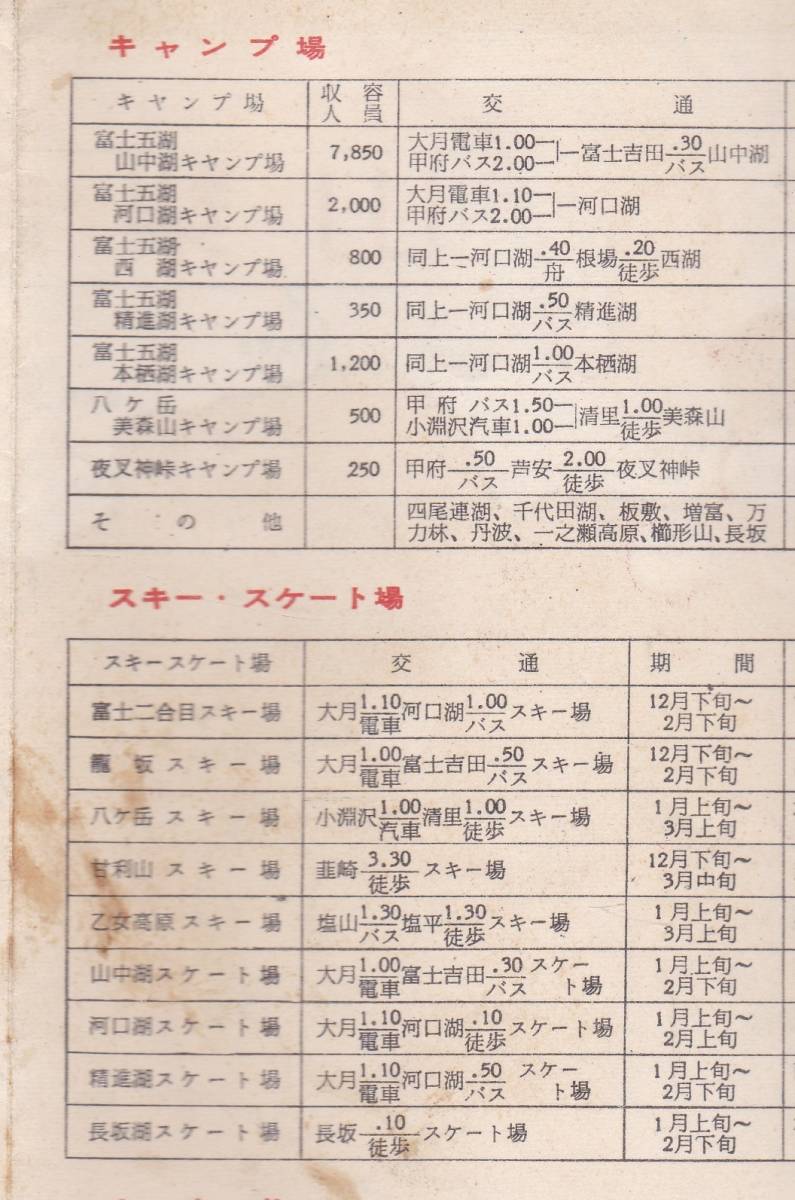 キャンプ場
キヤンプ場 収容人員 交通
富士五湖
山中湖キャンプ場 7,850 大月電車1.00 甲府バス2.00 ―富士吉田 .30 バス 山中湖
富士五湖
河口湖キヤンプ場 2,000 大月電車1.10 甲府バス2.00 ―河口湖
富士五湖
西湖キヤンプ場 800 同上―河口湖 .40 舟 根場 .20 徒歩 西湖
富士五湖
精進湖キヤンプ場 350 同上―河口湖 .50 バス 精進湖
富士五湖
本栖湖キヤンプ場 1,200 同上―河口湖 1.00 バス 本栖湖
八ケ岳
美森山キヤンプ場 500 甲府バス1.50 小淵沢汽車1.00 清里 1.00 徒歩 美森山
夜叉神峠キヤンプ場 250 甲府 .50 バス 芦安 2.00 徒歩 夜叉神峠
その他 四尾連湖、千代田湖、板敷、増富、万
力林、丹波、一之瀬高原、櫛形山、長坂
スキー・スケート場
スキースケート場 交通 期間
富士二合目スキー場 大月 1.10 電車 河口湖 1.00 バス スキー場 12月下旬〜2月下旬
籠坂スキー場 大月 1.00 電車 富士吉田 .50 バス スキー場 12月下旬〜2月下旬
八ケ岳スキー場 小淵沢 1.00 汽車 清里 1.00 徒歩 スキー場 1月上旬〜3月上旬
甘利山スキー場 韮崎 3.30 徒歩 スキー場 12月下旬〜3月中旬
乙女高原スキー場 塩山 1.30 バス 塩平 1.30 徒歩 スキー場 1月上旬〜3月上旬
山中湖スケート場 大月 1.00 電車 富士吉田 .30 バス スケート場 1月上旬〜2月下旬
河口湖スケート場 大月 1.10 電車 河口湖 .10 徒歩 スケート場 1月上旬〜2月上旬
精進湖スケート場 大月 1.10 電車 河口湖 .50 バス スケート場 1月上旬〜2月下旬
長坂湖スケート場 長坂 .10 徒歩 スケート場 1月上旬〜2月下旬